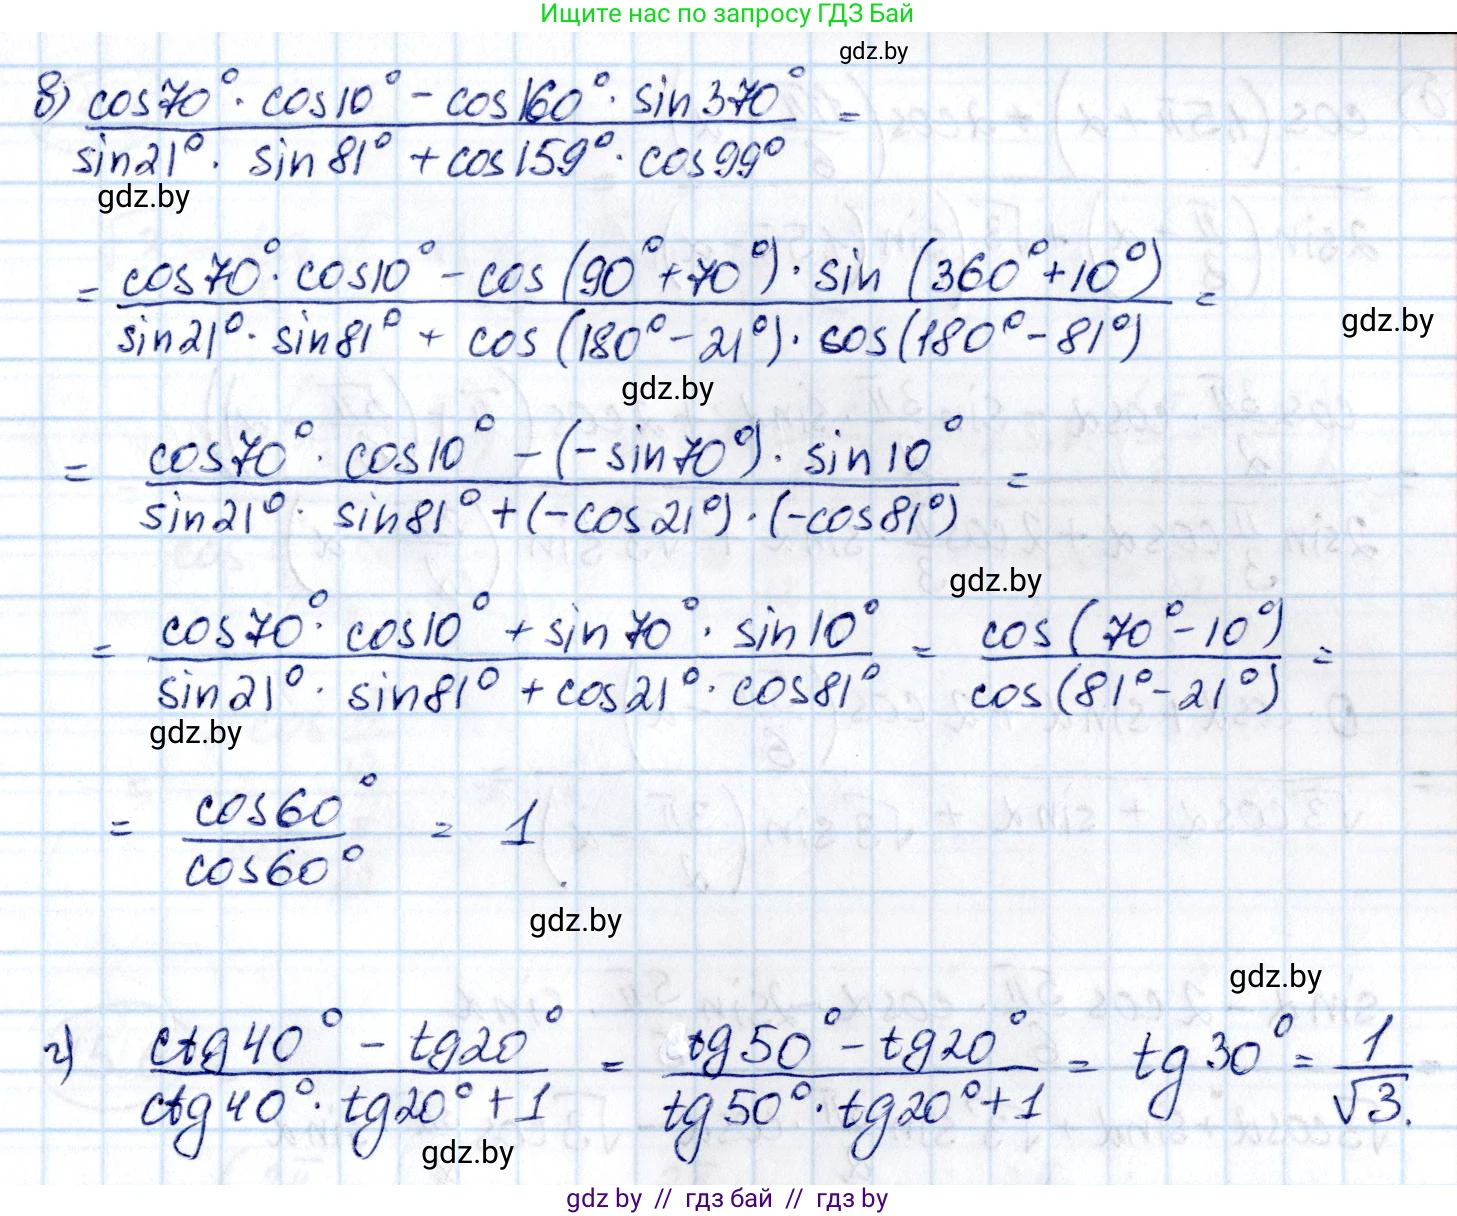 Ищите нас по запросу ГДЗ Бай
gdz.by
в) cos70°·cos10° - cos160°·sin370° / sin21°·sin81° + cos159°·cos99° =
gdz.by
= cos70°·cos10° - cos(90°+70°)·sin(360°+10°) / sin21°·sin81° + cos(180°-21°)·cos(180°-81°) =
gdz.by
gdz.by
= cos70°·cos10° - (-sin70°)·sin10° / sin21°·sin81° + (-cos21°)·(-cos81°) =
gdz.by
= cos70°·cos10° + sin70°·sin10° / sin21°·sin81° + cos21°·cos81° = cos(70°-10°) / cos(81°-21°) =
gdz.by
= cos60° / cos60° = 1.
gdz.by
gdz.by
г) ctg40° - tg20° / ctg40°·tg20° + 1 = tg50° - tg20° / tg50°·tg20° + 1 = tg30° = 1/√3.
gdz.by
gdz by // гдз бай // гдз by